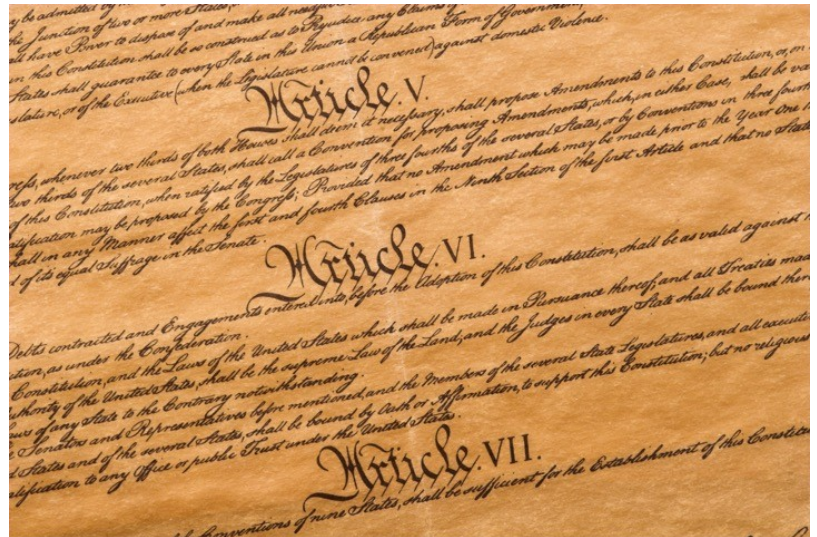 y be admitted by the
the Junction of two or more States,
all have Power to dispose of and make all need
in this Constitution shall be so construed as to Prejudice any Claims
States shall guarantee to every State in this Union a Republican Form of Government,
slature, or of the Executive (when the Legislature cannot be convened) against domestic Violence.
Article. V.
ress, whenever two thirds of both Houses shall deem it necessary, shall propose Amendments to this Constitution, or, on
two thirds of the several States, shall call a Convention for proposing Amendments, which, in either Case, shall be va
of this Constitution, when ratified by the Legislatures of three fourths of the several States, or by Conventions in three fourth
atification may be proposed by the Congress; Provided that no Amendment which may be made prior to the Year One
hall in any Manner affect the first and fourth Clauses in the Ninth Section of the first Article and that no State
d of its equal Suffrage in the Senate.
Article. VI.
Debts contracted and Engagements entered into, before the Adoption of this Constitution, shall be as valid against
tion, as under the Confederation.
Constitution, and the Laws of the United States which shall be made in Pursuance thereof; and all Treaties mad
uthority of the United States, shall be the supreme Law of the Land; and the Judges in every State shall be bound ther
aws of any State to the Contrary notwithstanding.
e Senators and Representatives before mentioned, and the Members of the several State Legislatures, and all executi
d States and of the several States, shall be bound by Oath or Affirmation, to support this Constitution; but no religious
alification to any Office or public Trust under the United States.
Article. VII.
Conventions of nine States, shall be sufficient for the Establishment of this Constitu